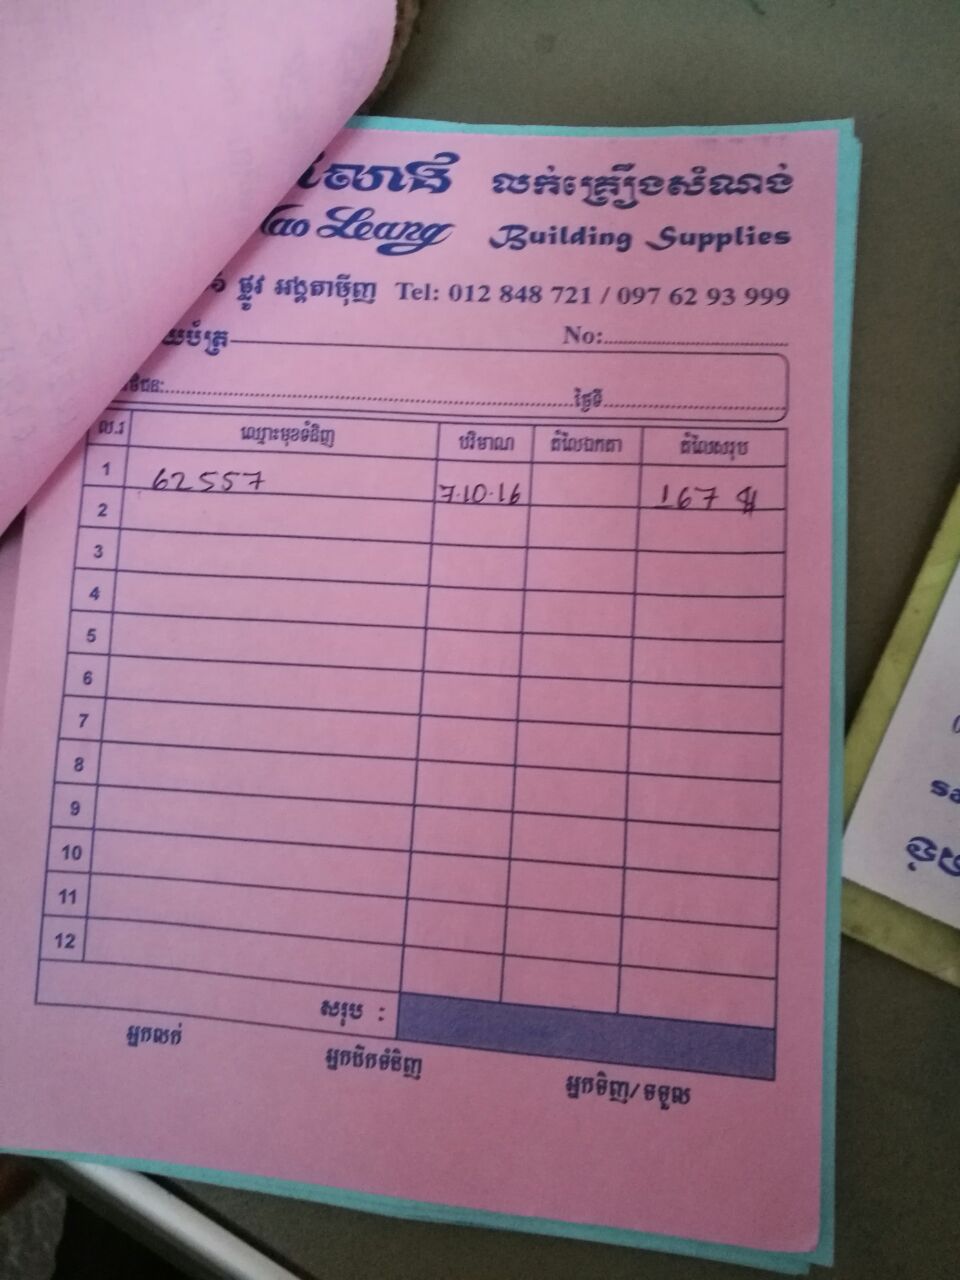 លាង លក់គ្រឿងសំណង់
ao Leang Building Supplies
ផ្លូវ អង្គតាម៉ិញ Tel: 012 848 721 / 097 62 93 999
No:
ថ្ងៃទី
ល.រ ឈ្មោះមុខទំនិញ បរិមាណ តំលៃឯកតា តំលៃសរុប
1 62557 7.10.16 167
2
3
4
5
6
7
8
9
10
11
12
សរុប :
អ្នកលក់ អ្នកដឹកទំនិញ អ្នកទិញ/ទទួល